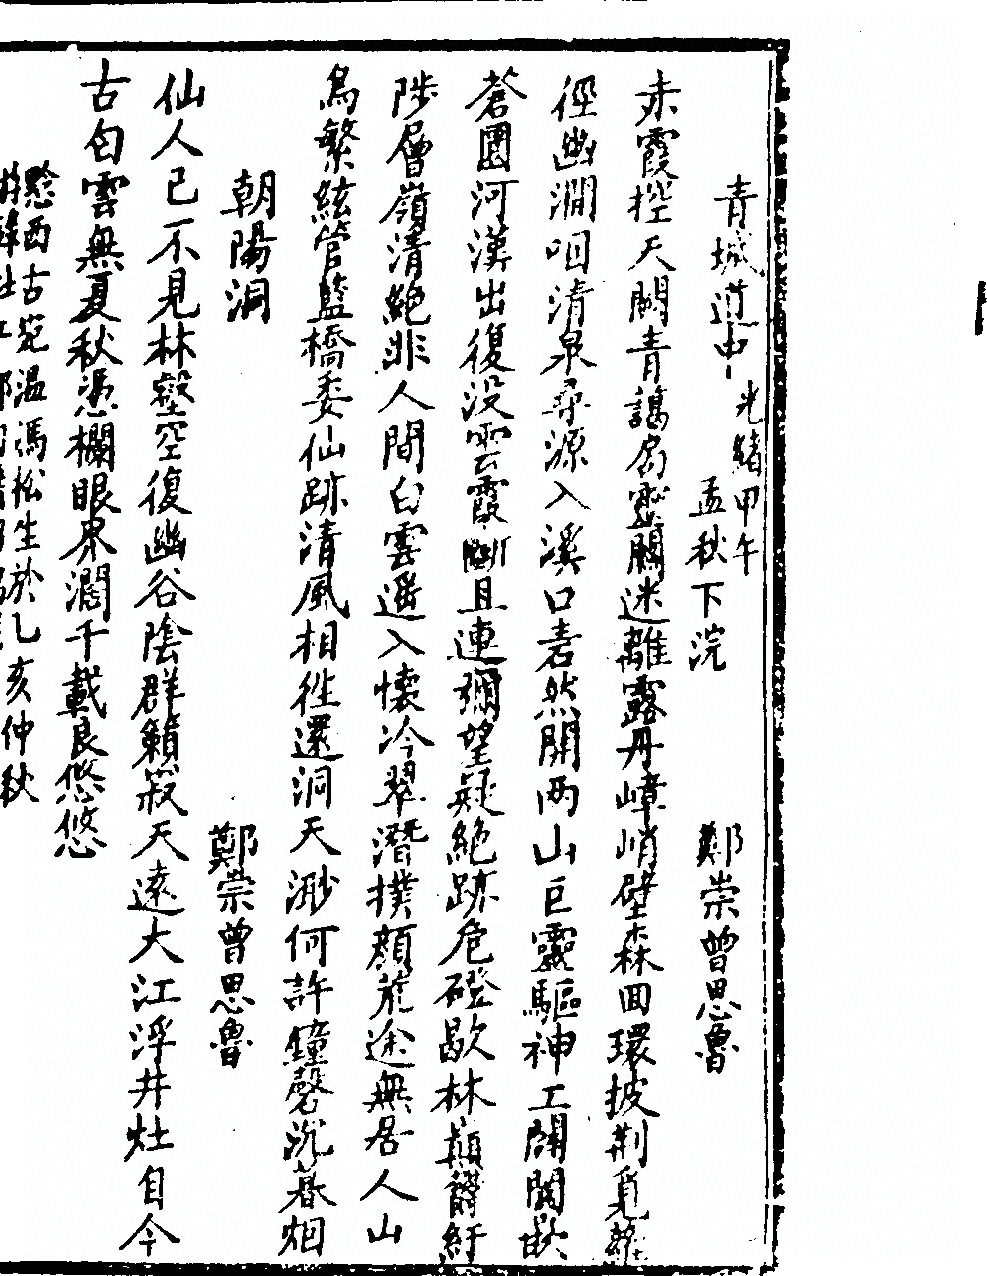 青城道中 光緒甲午孟秋下浣 鄭崇曾思魯
赤霞控天關青靄局靈關迷離露丹嶂峭壁森回環披荆覓
徑幽澗咽清泉尋源入溪口砉然開兩山巨靈驅神工闢闔嵌
蒼圜河漢出復没雲霞斷且連彌望疑絶跡危磴歇林巔鬱紆
陟層嶺清絶非人間白雲遥入懷冷翠潛撲顔荒途無居人山
鳥繁絃管藍橋委仙跡清風相徃還洞天渺何許鐘磬沉暮烟
朝陽洞 鄭崇曾思魯
仙人已不見林壑空復幽谷陰群籟寂天遠大江浮井灶自今
古匀雲無夏秋憑欄眼界濶千載良悠悠
西古 温馮松生於乙亥仲秋